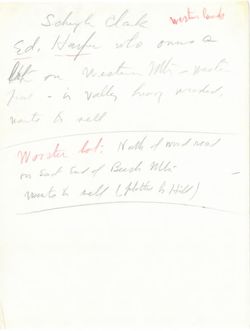 Schuyler Clark
Western lands
Ed. Harper who owns a
lot on Western Mtn - western
- in valley heavy wooded,
wants to sell
Worster lot: North of wood road
on East End of Beech Mtn
wants to sell (plotted by Hill)